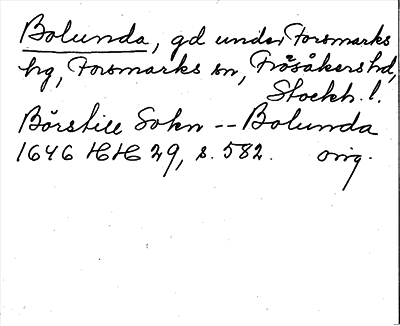 Bolunda, gd under Forsmarks
hg, Forsmarks sn, Frösåkers hd,
Stockh. l.
Börstill Sokn -- Bolunda
1646 HH 29, s. 582. orig.